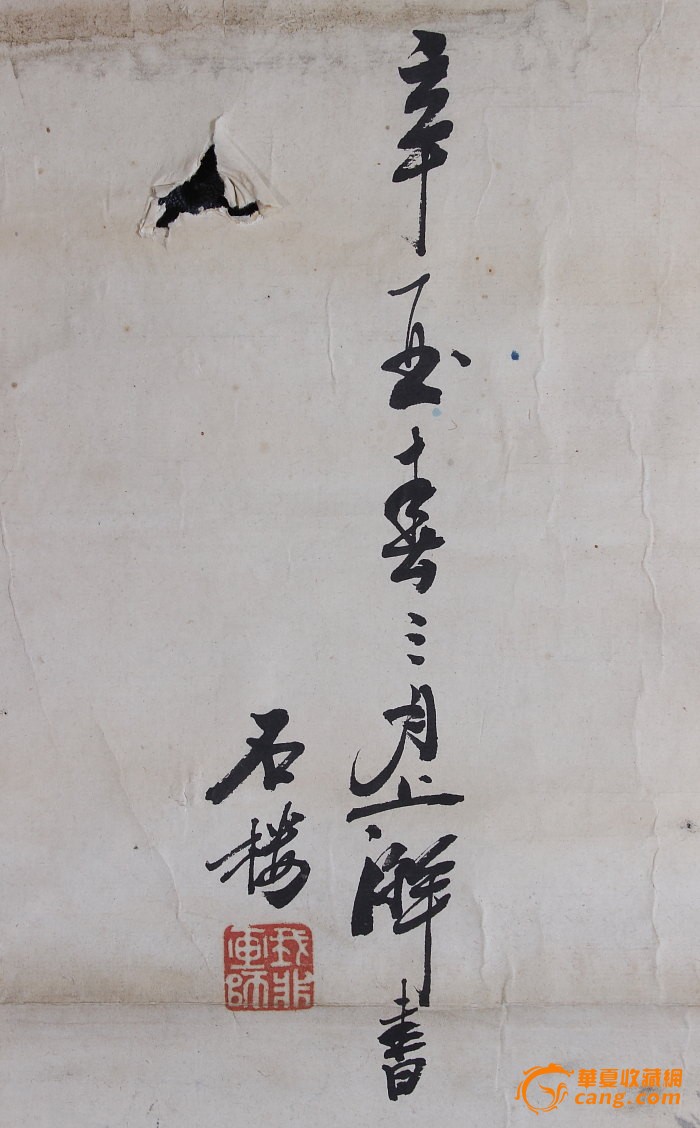 辛酉春三月上澣書
石楼
我非
畫師
華夏收藏網
cang.com